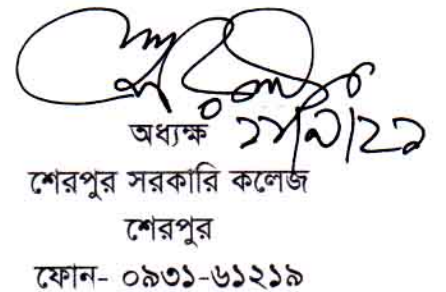 অধ্যক্ষ
শেরপুর সরকারি কলেজ
শেরপুর
ফোন- ০৯৩১-৬১২১৯